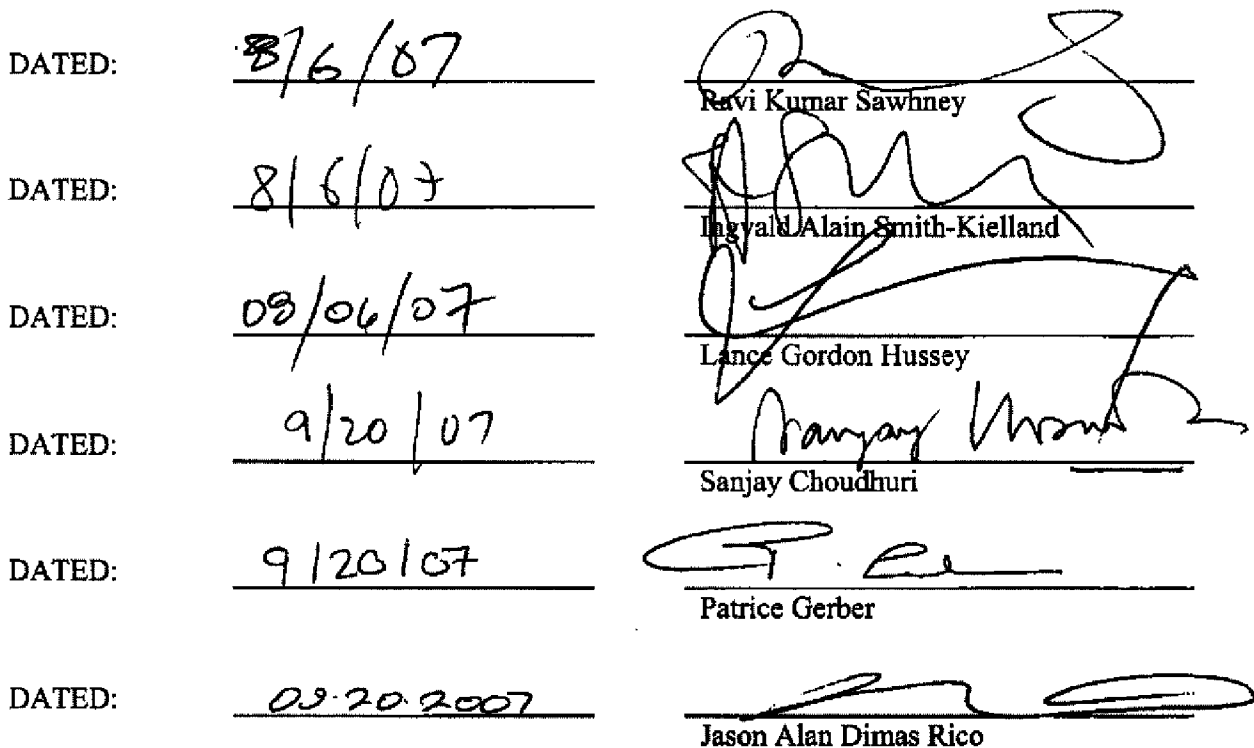 DATED: 8/6/07
Ravi Kumar Sawhney
DATED: 8/6/07
Ingvald Alain Smith-Kielland
DATED: 08/06/07
Lance Gordon Hussey
DATED: 9/20/07 Sanjay
Sanjay Choudhuri
DATED: 9/20/07
Patrice Gerber
DATED: 09.20.2007
Jason Alan Dimas Rico